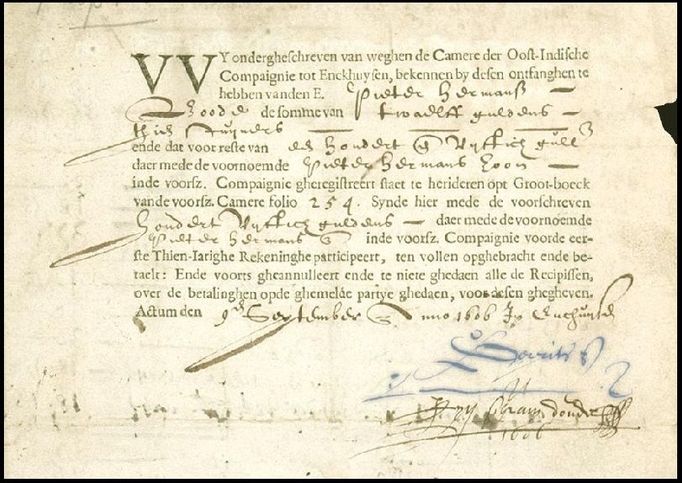 VVY ondergheschreven van weghen de Camere der Oost-Indische
Compaignie tot Enckhuysen, bekennen by desen ontfanghen te
hebben vanden E. Pieter Hermanss
de somme van twaelff guldens

ende dat voor reste van hondert Vyftich gull
daer mede de voornoemde Pieter Hermans zoon
inde voorsz. Compaignie gheregistreert staet te herideren opt Groot-boeck
vande voorsz. Camere folio 254. Synde hier mede de voorschreven
hondert Vyftich guldens daer mede de voornoemde
Pieter Hermans inde voorsz. Compaignie voorde eer-
ste Thien-Iarighe Rekeninghe participeert, ten vollen opghebracht ende be-
taelt: Ende voorts gheannulleert ende te niete ghedaen alle de Recipissen,
over de betalinghen opde ghemelde partye ghedaen, voor desen ghegheven.
Actum den 9en September Anno 1606
1606